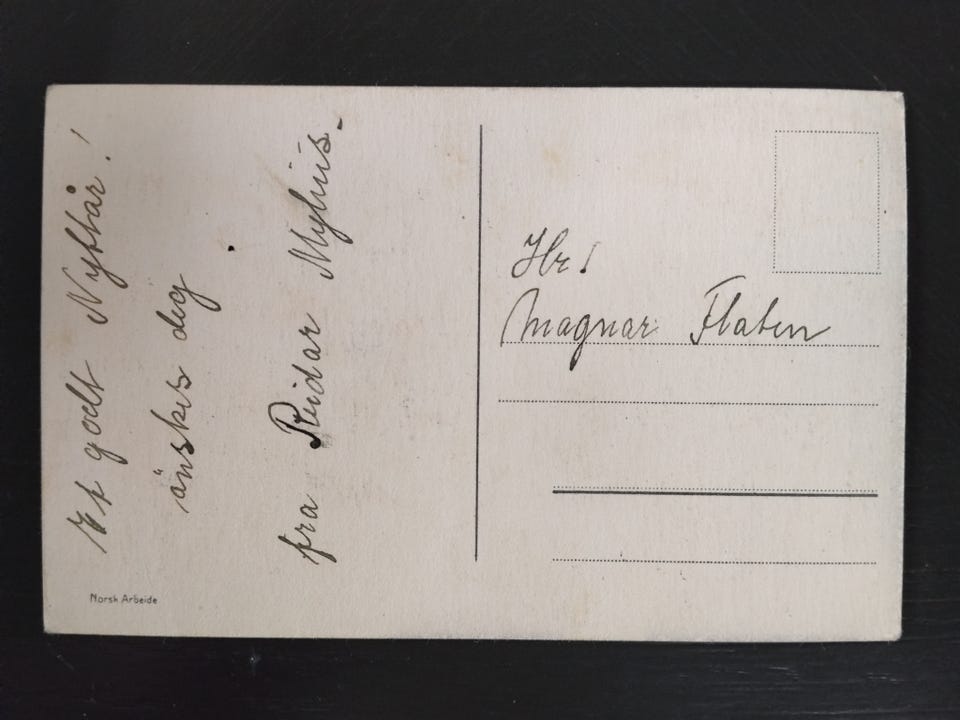 Et godt Nyttår!
önskes dig
fra Reidar Myhus.
Hr!
Magnar Flaten
Norsk Arbeide